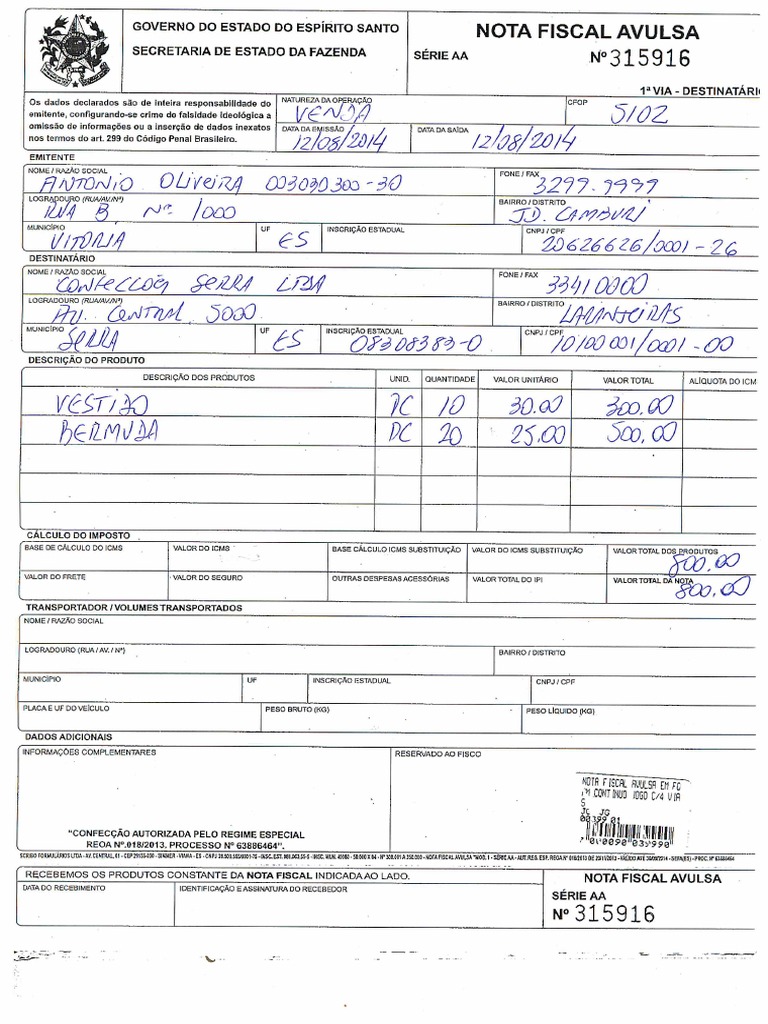 GOVERNO DO ESTADO DO ESPÍRITO SANTO
SECRETARIA DE ESTADO DA FAZENDA
NOTA FISCAL AVULSA
SÉRIE AA
Nº 315916
1ª VIA - DESTINATÁRIO
Os dados declarados são de inteira responsabilidade do
emitente, configurando-se crime de falsidade ideológica a
omissão de informações ou a inserção de dados inexatos
nos termos do art. 299 do Código Penal Brasileiro.
NATUREZA DA OPERAÇÃO
VENDA
CFOP
5102
DATA DA EMISSÃO
12/08/2014
DATA DA SAÍDA
12/08/2014
EMITENTE
NOME / RAZÃO SOCIAL
ANTONIO OLIVEIRA 003030300-30
FONE / FAX
3299.9999
LOGRADOURO (RUA/AV./Nº)
RUA B, Nº 1000
BAIRRO / DISTRITO
JD. CAMBURI
MUNICÍPIO
VITORIA
UF
ES
INSCRIÇÃO ESTADUAL
CNPJ / CPF
20626626/0001-26
DESTINATÁRIO
NOME / RAZÃO SOCIAL
CONFECÇÕES SERRA LTDA
FONE / FAX
33410000
LOGRADOURO (RUA/AV./Nº)
AV. CENTRAL 5000
BAIRRO / DISTRITO
LARANJEIRAS
MUNICÍPIO
SERRA
UF
ES
INSCRIÇÃO ESTADUAL
08308383-0
CNPJ / CPF
10100001/0001-00
DESCRIÇÃO DO PRODUTO
DESCRIÇÃO DOS PRODUTOS UNID. QUANTIDADE VALOR UNITÁRIO VALOR TOTAL ALÍQUOTA DO ICM
VESTIDO PC 10 30.00 300.00
BERMUDA PC 20 25.00 500,00
CÁLCULO DO IMPOSTO
BASE DE CÁLCULO DO ICMS
VALOR DO ICMS
BASE CÁLCULO ICMS SUBSTITUIÇÃO
VALOR DO ICMS SUBSTITUIÇÃO
VALOR TOTAL DOS PRODUTOS
800.00
VALOR DO FRETE
VALOR DO SEGURO
OUTRAS DESPESAS ACESSÓRIAS
VALOR TOTAL DO IPI
VALOR TOTAL DA NOTA
800.00
TRANSPORTADOR / VOLUMES TRANSPORTADOS
NOME / RAZÃO SOCIAL
LOGRADOURO (RUA / AV. / Nº)
BAIRRO / DISTRITO
MUNICÍPIO
UF
INSCRIÇÃO ESTADUAL
CNPJ / CPF
PLACA E UF DO VEÍCULO
PESO BRUTO (KG)
PESO LÍQUIDO (KG)
DADOS ADICIONAIS
INFORMAÇÕES COMPLEMENTARES
RESERVADO AO FISCO
NOTA FISCAL AVULSA EM FO
CONTINUO JOGO C/4 VIA
S
JG JG
00399 01
"CONFECÇÃO AUTORIZADA PELO REGIME ESPECIAL
REOA Nº.018/2013, PROCESSO Nº 63886464".
RECEBEMOS OS PRODUTOS CONSTANTE DA NOTA FISCAL INDICADA AO LADO.
DATA DO RECEBIMENTO
IDENTIFICAÇÃO E ASSINATURA DO RECEBEDOR
NOTA FISCAL AVULSA
SÉRIE AA
Nº 315916